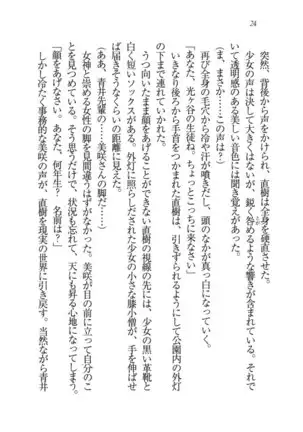 24
突然、背後から声をかけられ、直樹は全身を硬直させた。
少女の声は決して大きくはないが、鋭く咎めるような響きが含まれている。それで
いて透明感のある美しい音色には聞き覚えがあった。
(ま、まさか……この声は?)
再び全身の毛穴から冷や汗が噴きだし、頭のなかが真っ白になっていく。
「あなた、光ヶ谷の生徒ね。ちょっとこっちに来なさい」
いきなり後ろから手首をつかまれた直樹は、引きずられるようにして公園内の外灯
の下に連れていかれた。
うつ向いたまま顔をあげることができない直樹の視線の先には、少女の黒い革靴と
白く短いソックスがある。外灯に照らしだされた少女の小さな膝小僧が、手を伸ばせ
ば届きそうなくらいの距離に見えた。
(ああ、青井先輩の……美咲さんの脚だ……)
女神と崇める女性の脚を見間違うはずがなかった。美咲が目の前に立って自分のこ
とを見つめている。そう思うだけで、状況を忘れて、天にも昇る心地になってしまう。
「顔をあげなさい。あなた、何年生? 名前は?」
しかし冷たく事務的な美咲の声が、直樹を現実の世界に引き戻す。当然ながら青井